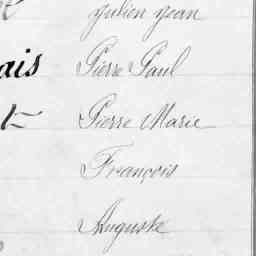 Julien Jean
ais Pierre Paul
Pierre Marie
François
Auguste